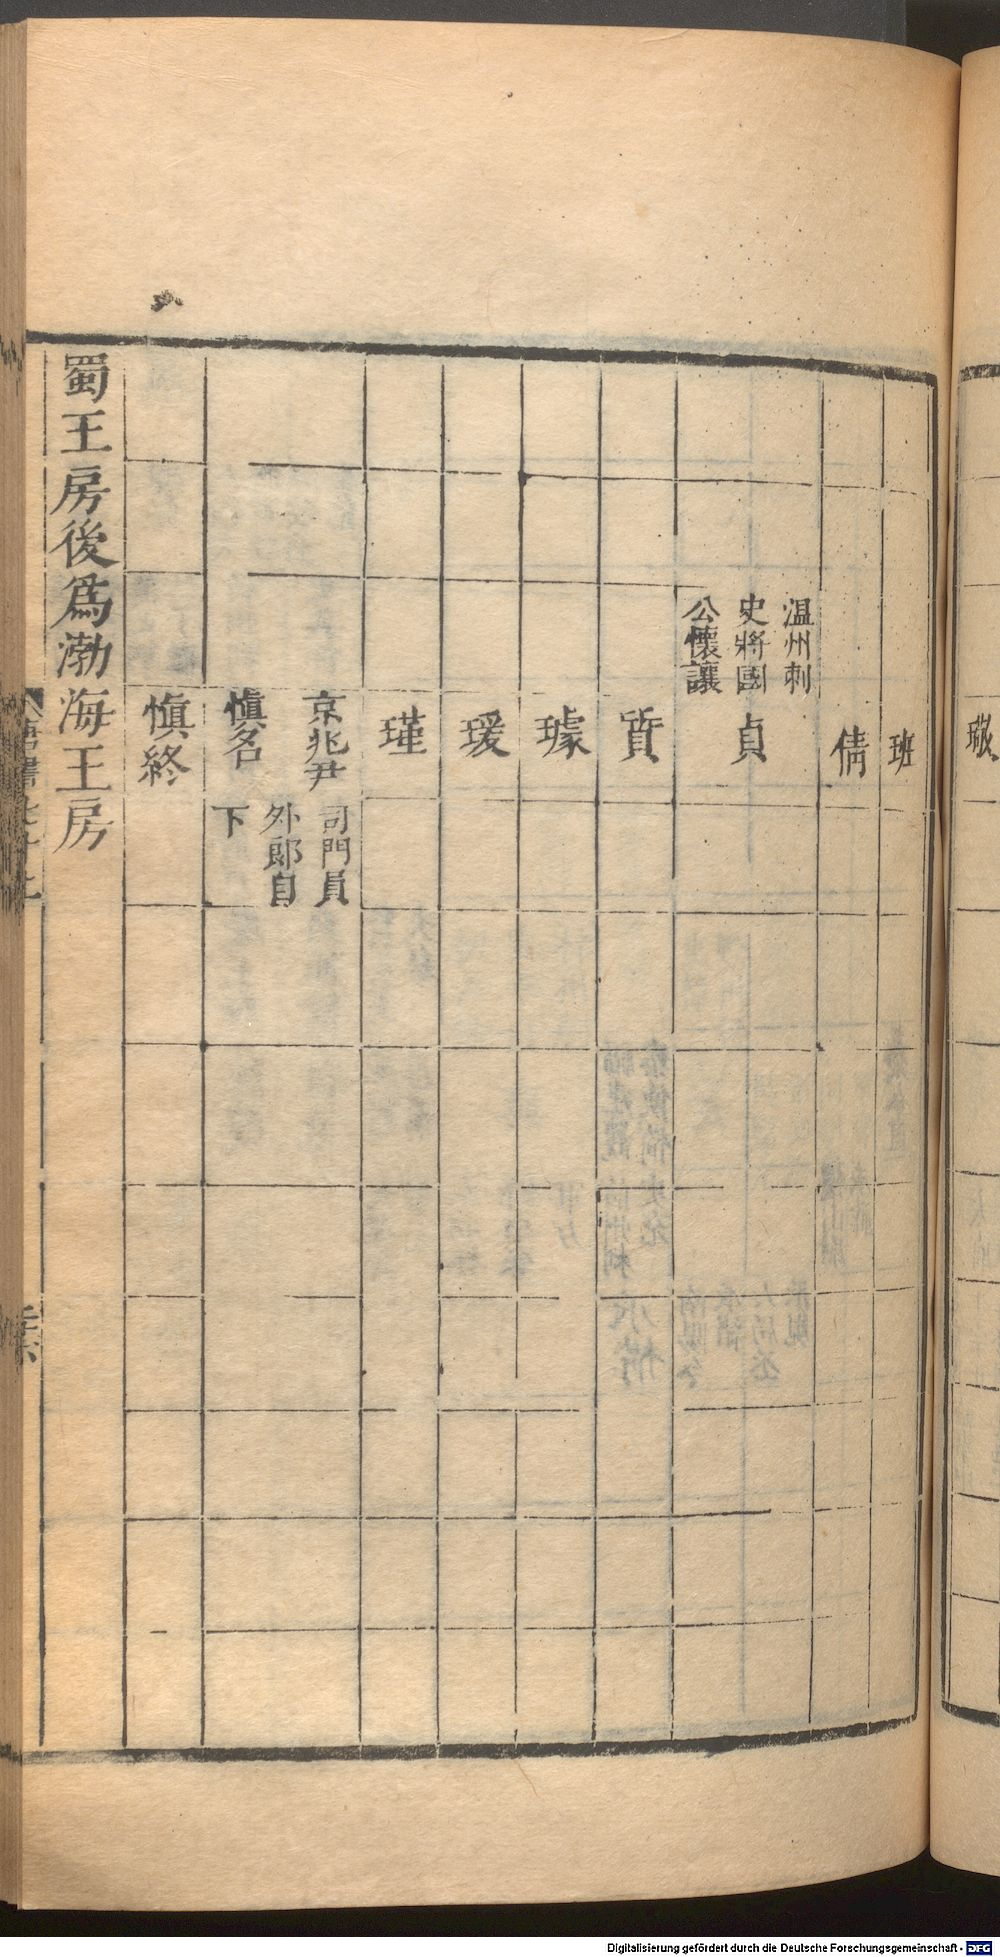 班
倩
温州刺
史將國
公懷讓
貞
質
璩
瑗
瑾
京兆尹
愼名
司門員
外郎自
下
愼終
蜀王房後爲渤海王房
Digitalisierung gefördert durch die Deutsche Forschungsgemeinschaft - DFG